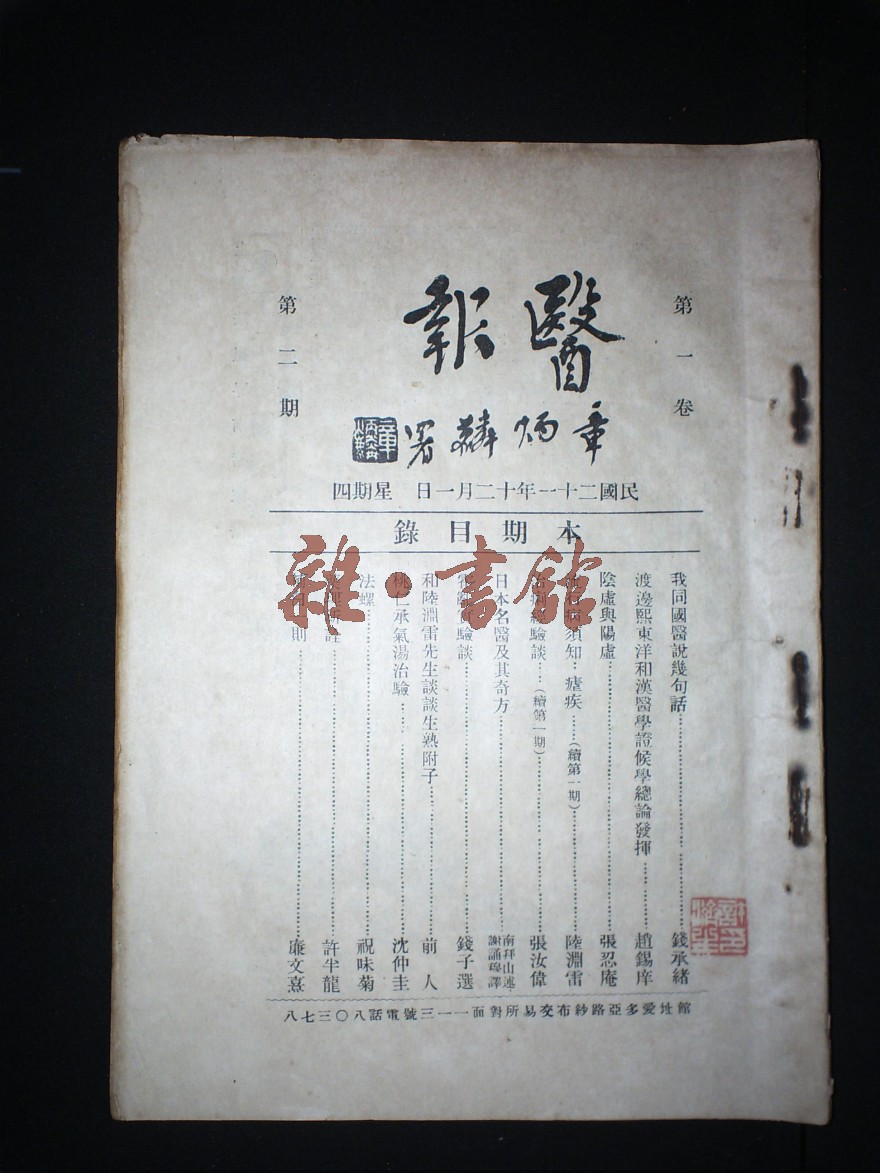 第一卷
醫報
章炳麟署
章炳麟
第二期
民國二十一年十二月一日 星期四
本期目錄
我同國醫說幾句話……錢承緒
渡邊熙東洋和漢醫學證候學總論發揮……趙錫庠
陰虛與陽虛……張忍庵
病須知:瘧疾……(續第一期)……陸淵雷
治病經驗談……(續第一期)……張汝偉
日本名醫及其奇方……南拜山述 謝誦穆譯
驗談……錢子選
和陸淵雷先生談談生熟附子……前人
桃仁承氣湯治驗……沈仲圭
法螺……祝味菊
……許半龍
則……廉文熹
館址愛多亞路紗布交易所對面一一三號電話八〇三七八
雜·書館